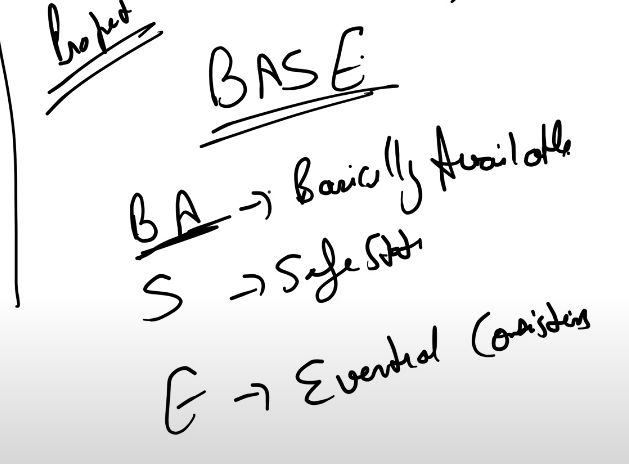 Project
BASE
BA → Basically Available
S → Safe State
E → Eventual Consistency